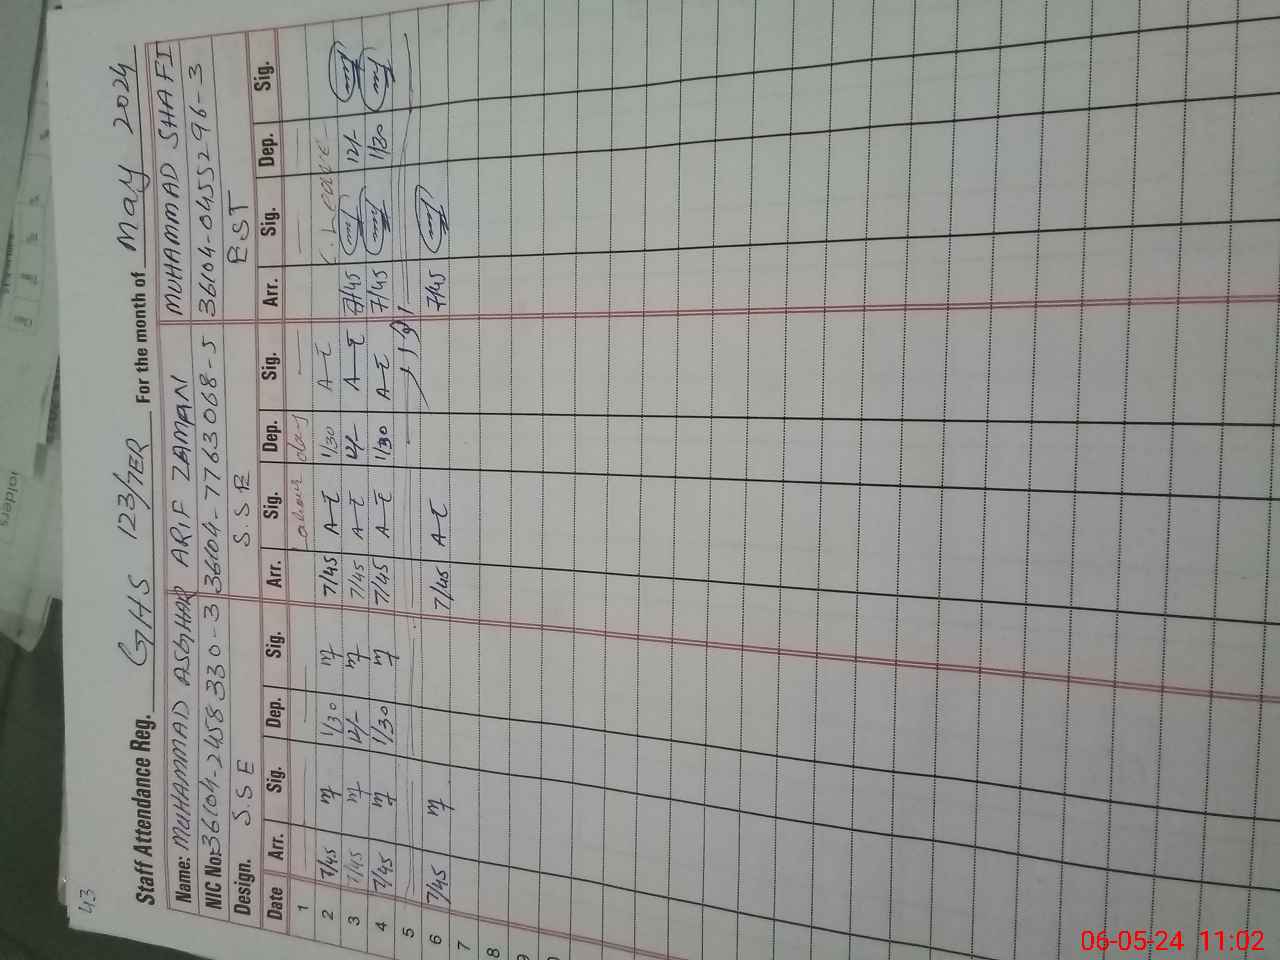 43
Staff Attendance Reg. GHS 123/7ER For the month of May 2024
Name: MUHAMMAD ASGHAR ARIF ZAMAN MUHAMMAD SHAFI
NIC No: 36104-2458330-3 36104-7763068-5 36104-0455296-3
Design. S.S.E S.S.E EST
Date Arr. Sig. Dep. Sig. Arr. Sig. Dep. Sig. Arr. Sig. Dep. Sig.
1 labour day
2 7/45 1/30 7/45 1/30 C. Leave
3 7/45 12/- 7/45 12/- 7/45 12/-
4 7/45 1/30 7/45 1/30 7/45 1/30
5
6 7/45 7/45 7/45
7
8
9
06-05-24 11:02